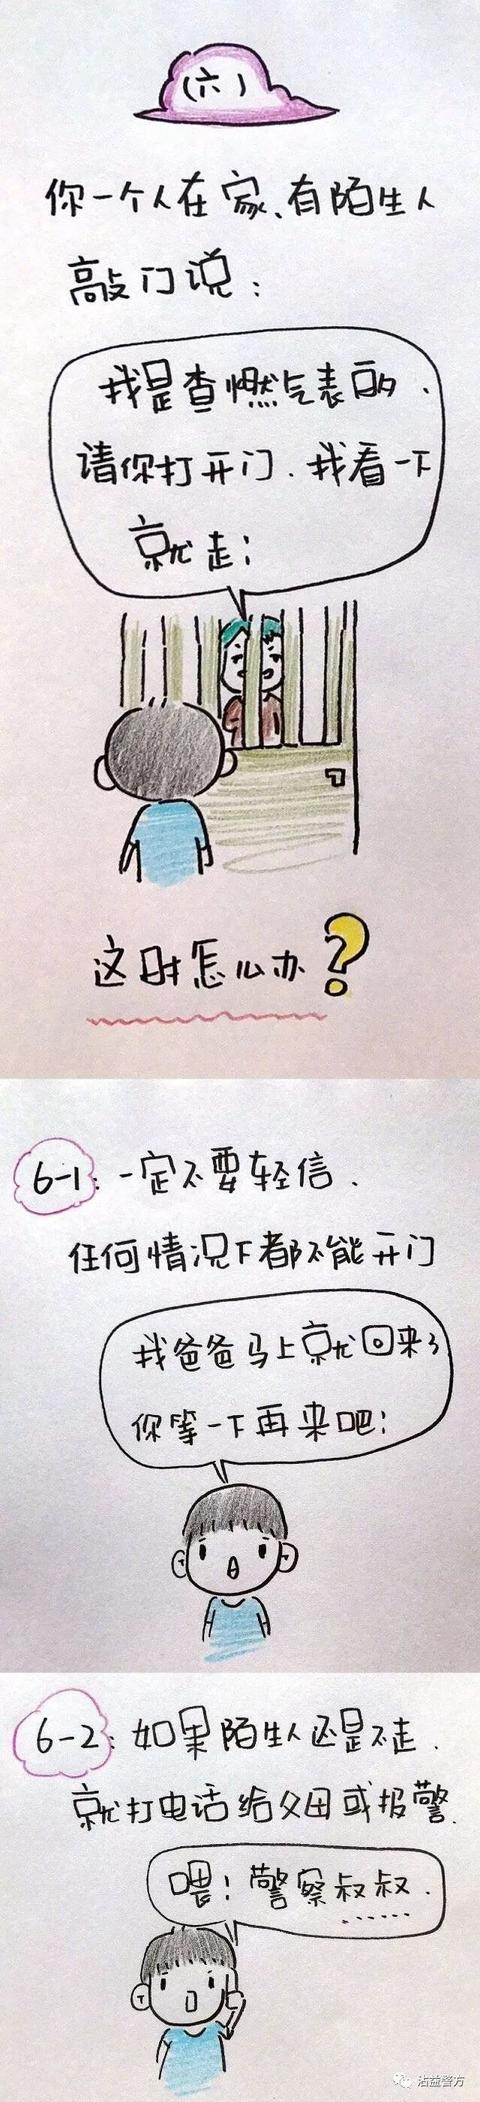 (六)
你一个人在家、有陌生人
敲门说：
我是查燃气表的、
请你打开门、我看一下
就走！
这时怎么办?
6-1：一定不要轻信、
任何情况下都不能开门
我爸爸马上就回来了
你等一下再来吧！
6-2：如果陌生人还是不走、
就打电话给父母或报警、
喂！警察叔叔、
……
沾益警方